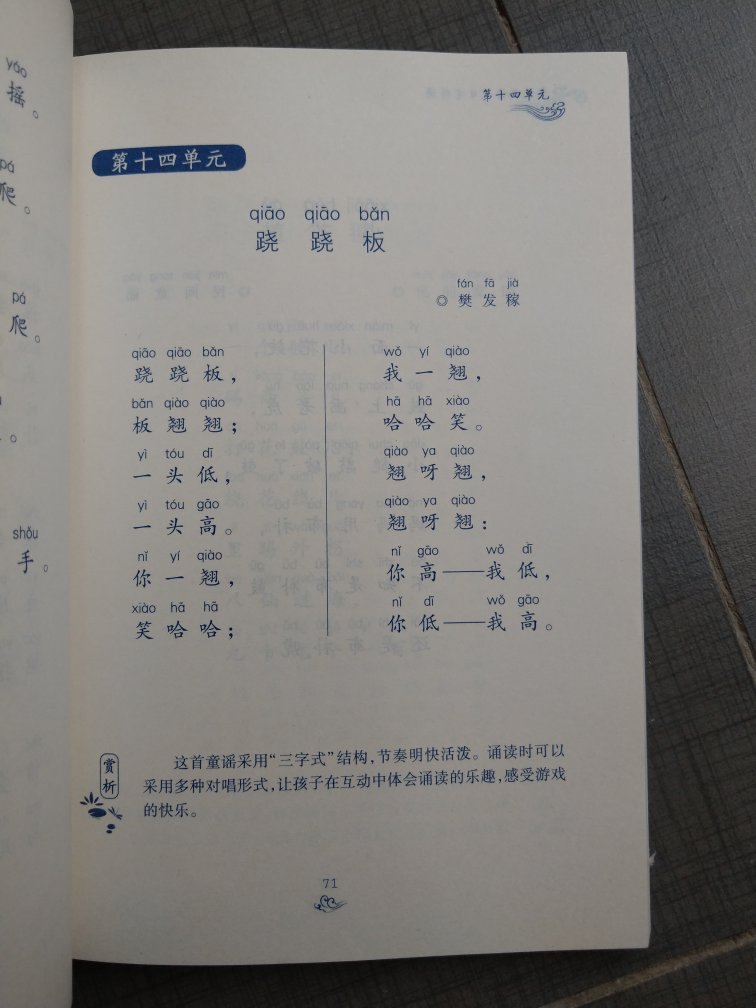 yáo
摇。
pá
爬。
pá
爬。
shǒu
手。
第十四单元
第十四单元
qiāo qiāo bǎn
跷跷板
fán fā jià
◎樊发稼
qiāo qiāo bǎn
跷跷板，
bǎn qiào qiào
板翘翘；
yì tóu dī
一头低，
yì tóu gāo
一头高。
nǐ yí qiào
你一翘，
xiào hā hā
笑哈哈；
wǒ yí qiào
我一翘，
hā hā xiào
哈哈笑。
qiào ya qiào
翘呀翘，
qiào ya qiào
翘呀翘：
nǐ gāo wǒ dī
你高——我低，
nǐ dī wǒ gāo
你低——我高。
赏析
这首童谣采用“三字式”结构，节奏明快活泼。诵读时可以
采用多种对唱形式，让孩子在互动中体会诵读的乐趣，感受游戏
的快乐。
71